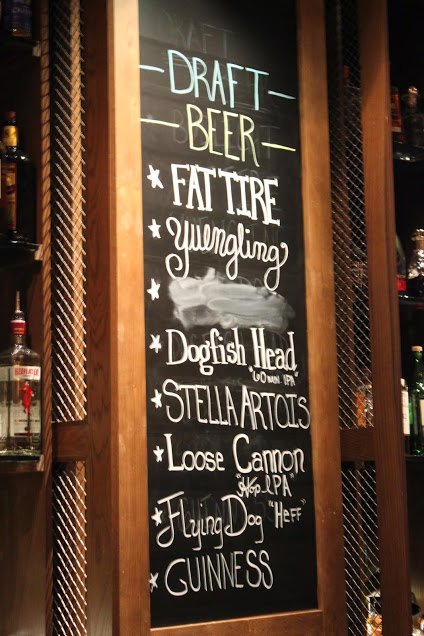 DRAFT
BEER
FAT TIRE
Yuengling
Dogfish Head
"60 min IPA"
STELLA ARTOIS
Loose Cannon
"Hop IPA"
Flying Dog "Heff"
GUINNESS
BEEFEATER